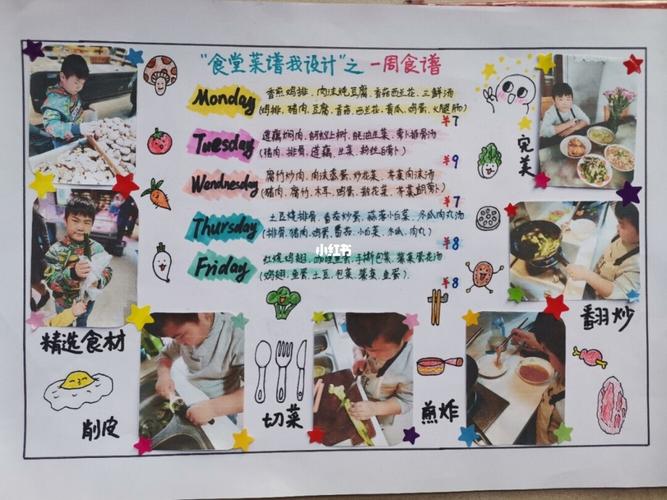 “食堂菜谱我设计”之 一周食谱
Monday
香煎鸡排、肉沫炖豆腐、青菇西兰花、三鲜汤
(鸡排、猪肉、豆腐、青菇、西兰花、黄瓜、鸡蛋、火腿肠)
¥7
Tuesday
莲藕焖肉、蚂蚁上树、蚝油生菜、萝卜排骨汤
(猪肉、排骨、莲藕、生菜、粉丝、萝卜)
¥9
Wednesday
腐竹炒肉、肉沫蒸蛋、炒花菜、木耳肉沫汤
(猪肉、腐竹、木耳、鸡蛋、花菜
¥7
Thursday
土豆烧排骨、番茄炒蛋、蒜蓉小白菜、冬瓜肉丸汤
(排骨、猪肉、鸡蛋、番茄、小白菜、冬瓜、肉丸)
¥8
Friday
红烧鸡翅、手撕包菜、紫菜蛋花汤
(鸡翅、鱼蛋、土豆、包菜、紫菜、鱼蛋)
¥8
小红书
完美
精选食材
翻炒
削皮
切菜
煎炸